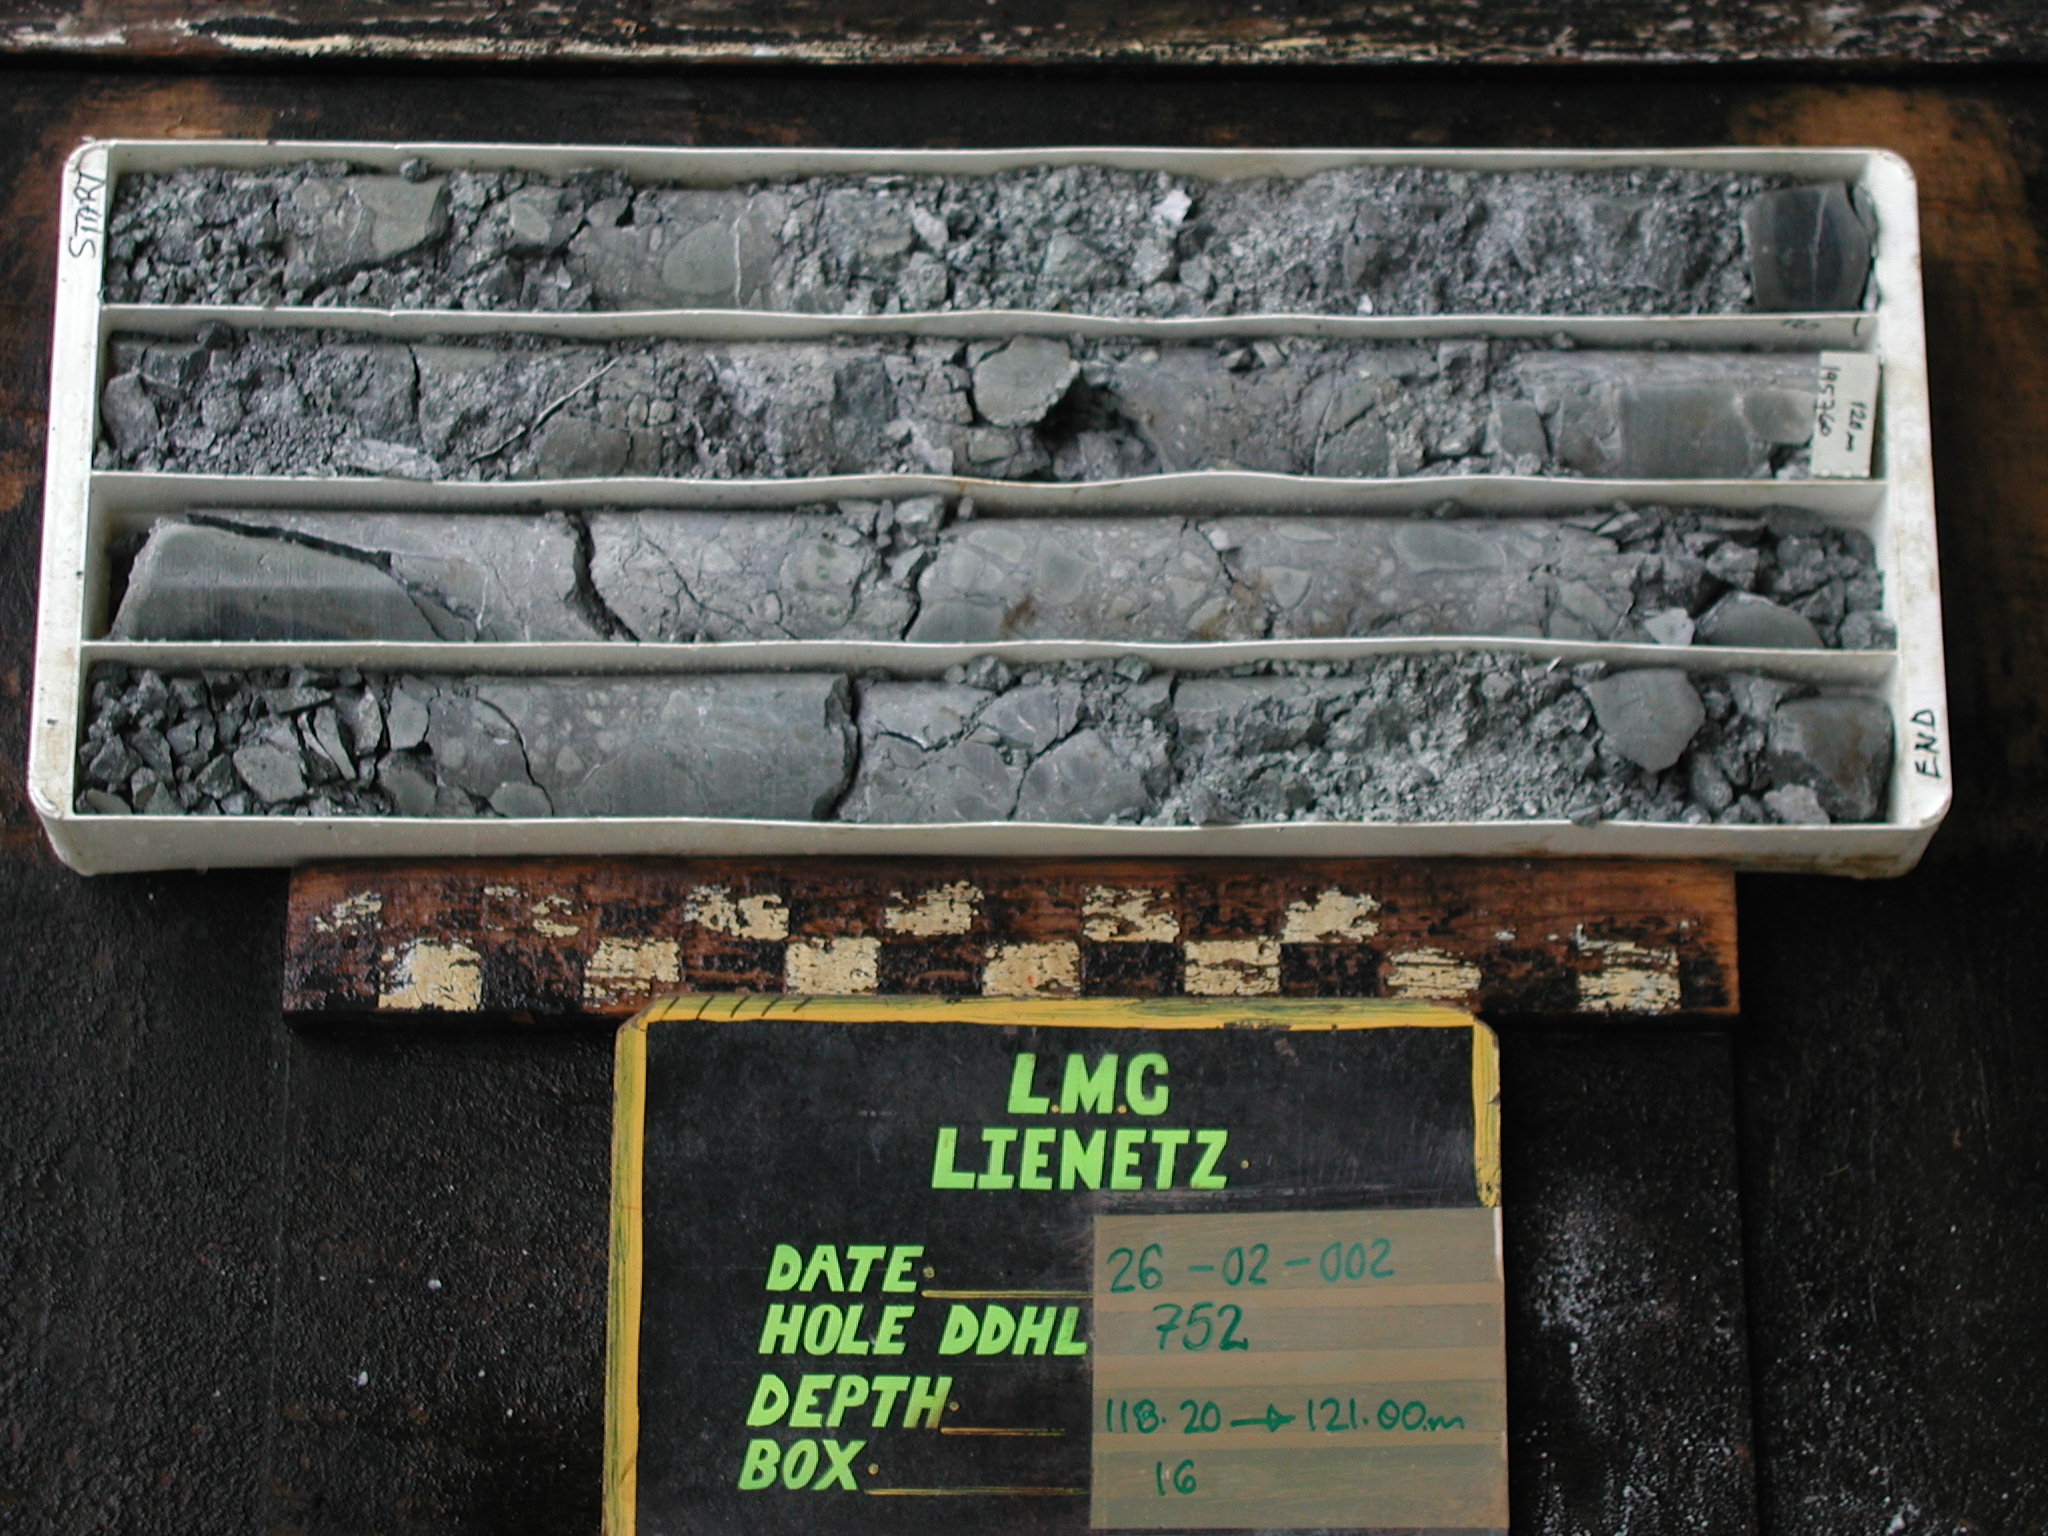 START
120m
195760
END
L.M.C
LIENETZ.
DATE. 26-02-002
HOLE DDHL 752
DEPTH. 118.20 → 121.00m
BOX. 16